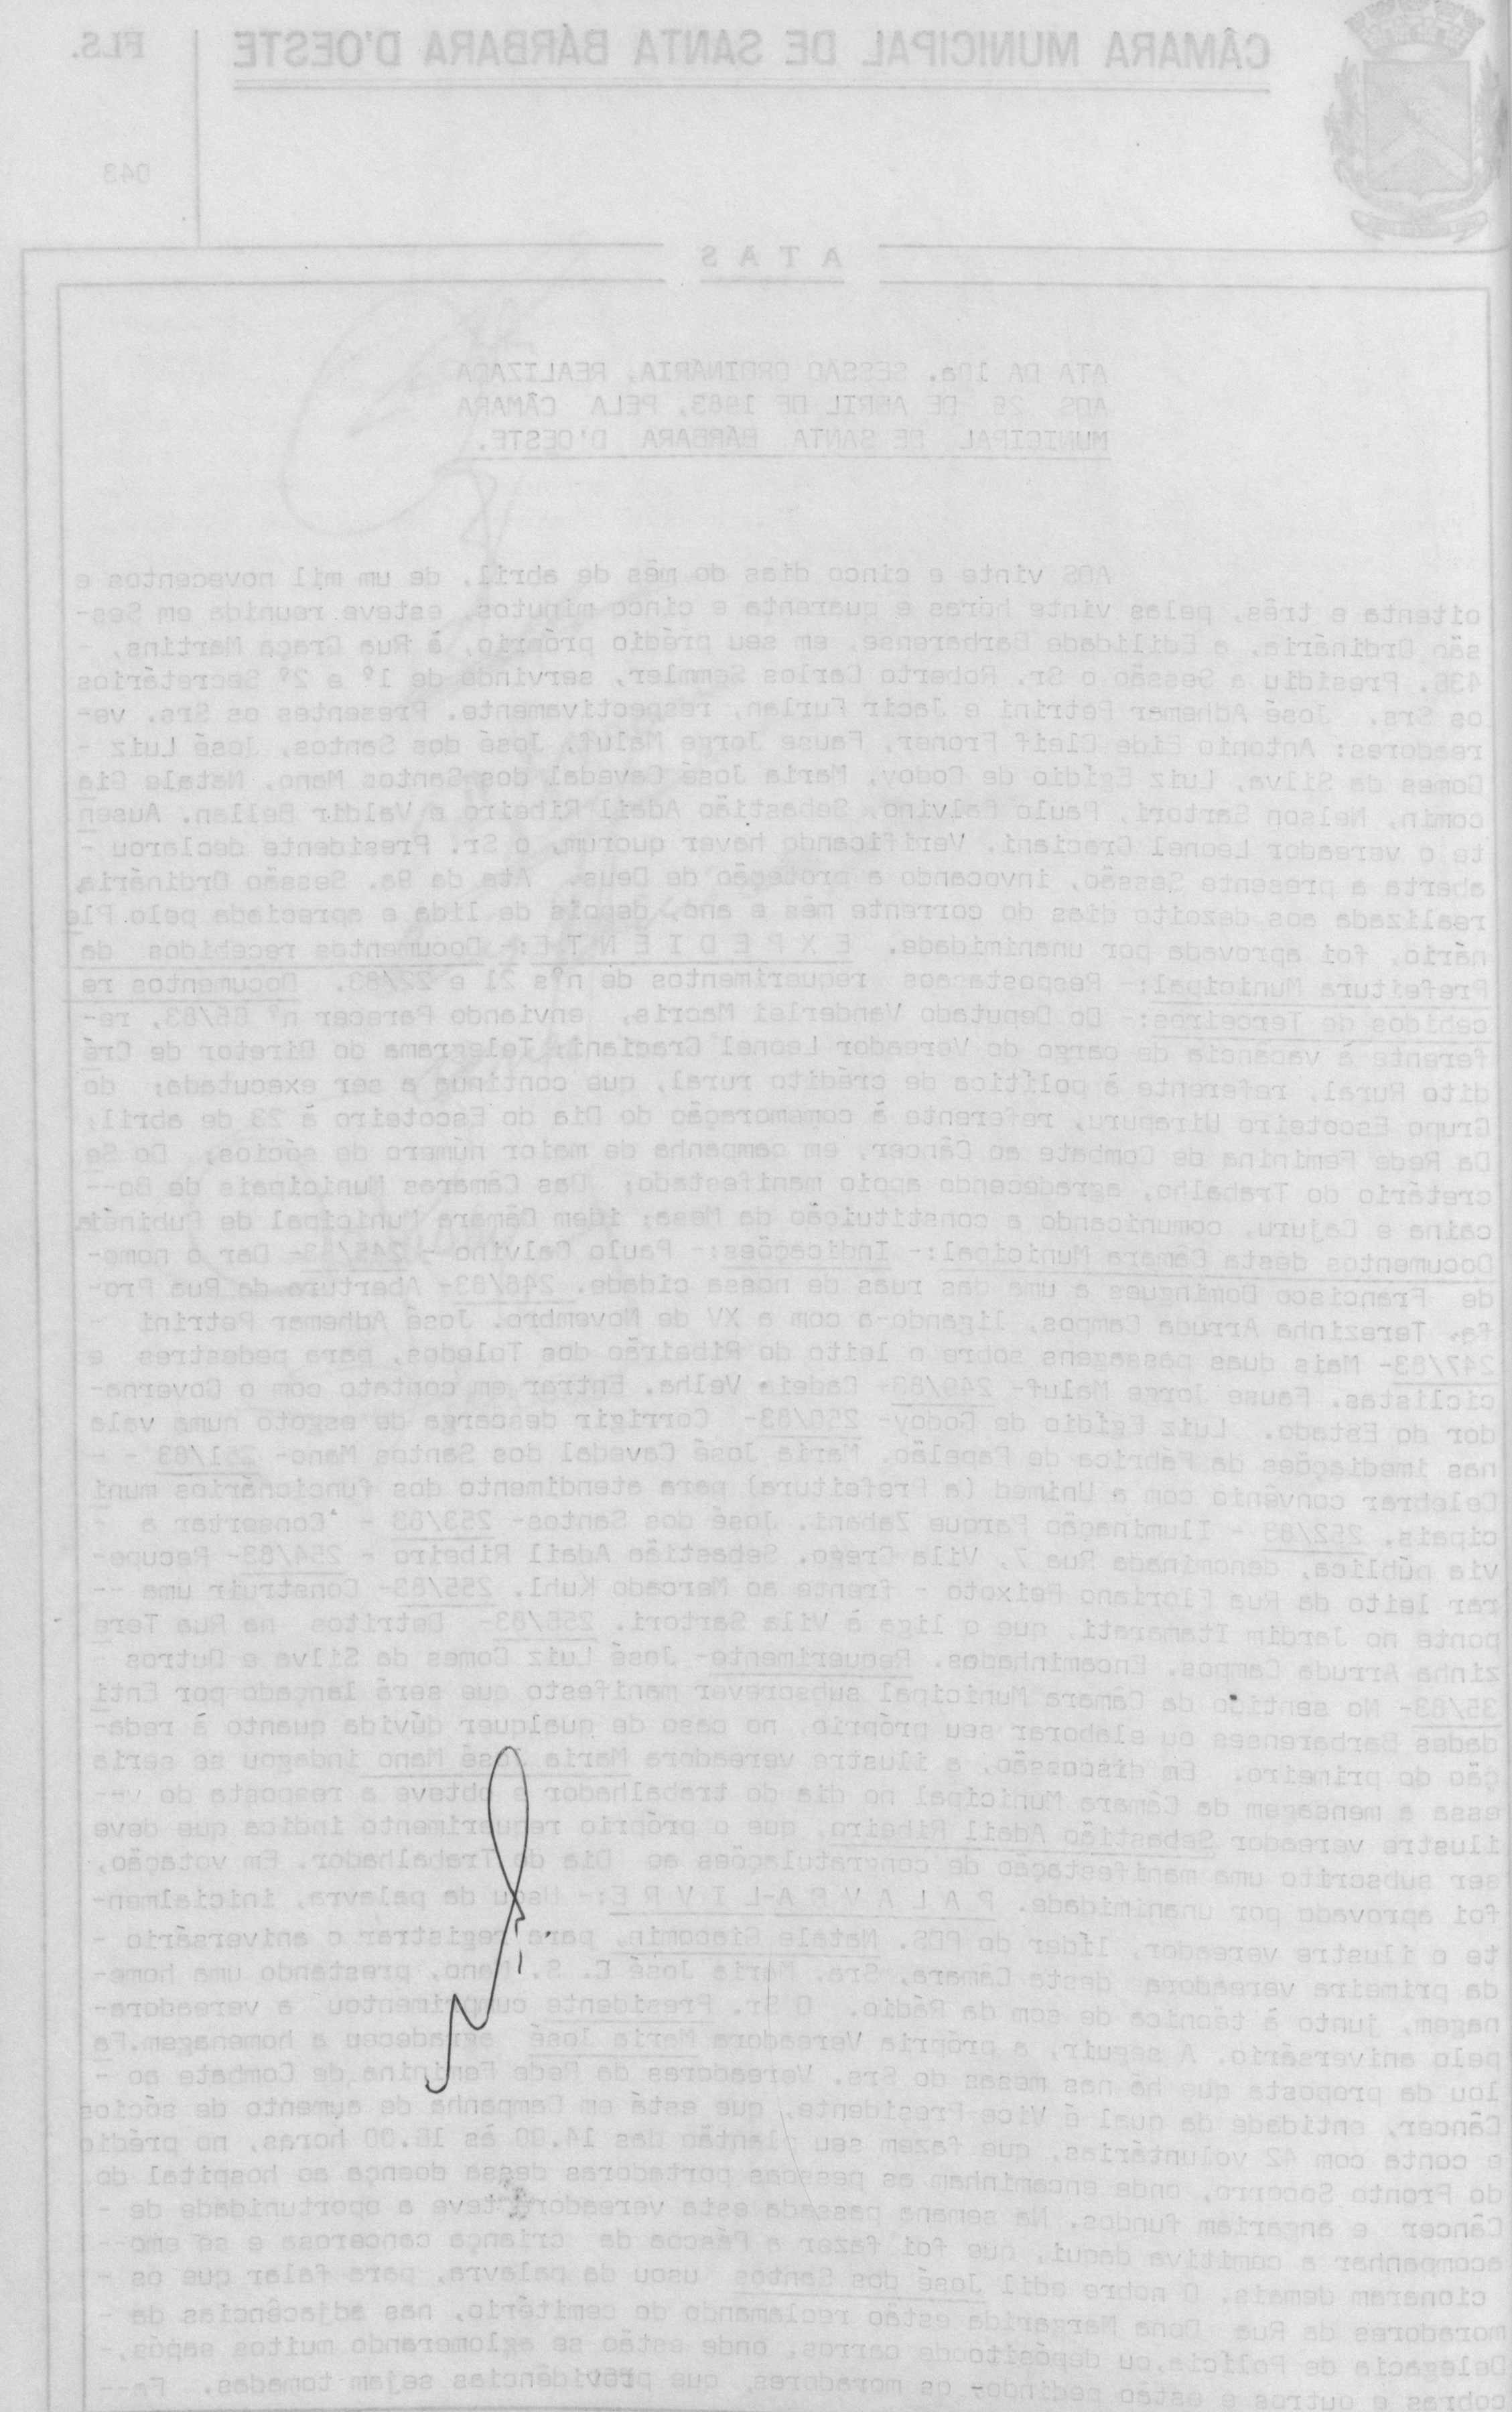 CÂMARA MUNICIPAL DE SANTA BÁRBARA D'OESTE
FLS.
043
A T A S
ATA DA 10a. SESSÃO ORDINÁRIA, REALIZADA
AOS 25 DE ABRIL DE 1983, PELA CÂMARA
MUNICIPAL DE SANTA BÁRBARA D'OESTE.
AOS vinte e cinco dias do mês de abril, de um mil novecentos e
oitenta e três, pelas vinte horas e quarenta e cinco minutos, esteve reunida em Ses-
são Ordinária, a Edilidade Barbarense, em seu prédio próprio, à Rua Graça Martins, -
436. Presidiu a Sessão o Sr. Roberto Carlos Sommler, servindo de 1º e 2º Secretários
os Srs. José Adhemar Petrini e Jacir Furlan, respectivamente. Presentes os Srs. ve-
readores: Antonio Eide Cleif Froner, Fause Jorge Maluf, José dos Santos, José Luiz -
Gomes da Silva, Luiz Egídio de Godoy, Maria José Cavedal dos Santos Mano, Natale Gia
comin, Nelson Sartori, Paulo Calvino, Sebastião Adail Ribeiro e Valdir Bellan. Ausen
te o vereador Leonel Graciani. Verificando haver quorum, o Sr. Presidente declarou -
aberta a presente Sessão, invocando a proteção de Deus. Ata da 9a. Sessão Ordinária,
realizada aos dezoito dias do corrente mês e ano, depois de lida e apreciada pelo Ple
nário, foi aprovada por unanimidade. E X P E D I E N T E:- Documentos recebidos da
Prefeitura Municipal:- Respostas aos requerimentos de nºs 21 e 22/83. Documentos re
cebidos de Terceiros:- Do Deputado Vanderlei Macris, enviando Parecer nº 06/83, re-
ferente à vacância de cargo do Vereador Leonel Graciani; Telegrama do Diretor de Cré
dito Rural, referente à política de crédito rural, que continua a ser executada; do
Grupo Escoteiro Uirapuru, referente à comemoração do Dia do Escoteiro à 23 de abril;
Da Rede Feminina de Combate ao Câncer, em campanha de maior número de sócios; Do Se
cretário do Trabalho, agradecendo apoio manifestado; Das Câmaras Municipais de Bo--
caina e Cajuru, comunicando a constituição da Mesa; idem Câmara Municipal de Rubinéia
Documentos desta Câmara Municipal:- Indicações:- Paulo Calvino - 245/83- Dar o nome-
de Francisco Domingues a uma das ruas de nossa cidade. 246/83- Abertura da Rua Pro-
fa. Terezinha Arruda Campos, ligando-a com a XV de Novembro. José Adhemar Petrini -
247/83- Mais duas passagens sobre o leito do Ribeirão dos Toledos, para pedestres e
ciclistas. Fause Jorge Maluf- 249/83- Cadeia Velha. Entrar em contato com o Governa-
dor do Estado. Luiz Egídio de Godoy- 250/83- Corrigir descarga de esgoto numa vala
nas imediações da Fábrica de Papelão. Maria José Cavedal dos Santos Mano- 251/83 - -
Celebrar convênio com a Unimed (a Prefeitura) para atendimento dos funcionários muni
cipais. 252/83 - Iluminação Parque Zabani. José dos Santos- 253/83 - Consertar a -
via pública, denominada Rua 7, Vila Grego. Sebastião Adail Ribeiro - 254/83- Recupe-
rar leito da Rua Floriano Peixoto - frente ao Mercado Kuhl. 255/83- Construir uma --
ponte no Jardim Itamarati, que o liga à Vila Sartori. 256/83- Detritos na Rua Tere
zinha Arruda Campos. Encaminhados. Requerimento- José Luiz Gomes da Silva e Outros -
35/83- No sentido da Câmara Municipal subscrever manifesto que será lançado por Enti
dades Barbarenses ou elaborar seu próprio, no caso de qualquer dúvida quanto à reda-
ção do primeiro. Em discussão, a ilustre vereadora Maria José Mano indagou se seria
essa a mensagem da Câmara Municipal no dia do trabalhador e obteve a resposta do v--
ilustre vereador Sebastião Adail Ribeiro, que o próprio requerimento indica que deve
ser subscrito uma manifestação de congratulações ao Dia do Trabalhador. Em votação,
foi aprovado por unanimidade. P A L A V R A-L I V R E:- Usou da palavra, inicialmen-
te o ilustre vereador, líder do PDS, Natale Giacomin, para registrar o aniversário -
da primeira vereadora desta Câmara, Sra. Maria José C. S. Mano, prestando uma home-
nagem, junto à técnica de som da Rádio. O Sr. Presidente cumprimentou a vereadora-
pelo aniversário. A seguir, a própria Vereadora Maria José agradeceu a homenagem.Fa
lou da proposta que há nas mesas do Srs. Vereadores da Rede Feminina de Combate ao -
Câncer, entidade da qual é Vice-Presidente, que está em Campanha de aumento de sócios
e conta com 42 voluntárias, que fazem seu plantão das 14.00 às 16.00 horas, no prédio
do Pronto Socorro, onde encaminham as pessoas portadoras dessa doença ao hospital do
Câncer e angariam fundos. Na semana passada esta vereadora teve a oportunidade de -
acompanhar a comitiva daqui, que foi fazer a Páscoa da criança cancerosa e se emo--
cionaram demais. O nobre edil José dos Santos usou da palavra, para falar que os -
moradores da Rua Dona Margarida estão reclamando do cemitério, nas adjacências da -
Delegacia de Polícia, ou depósito de carros, onde estão se aglomerando muitos sapos, -
cobras e outros e estão pedindo- os moradores, que providências sejam tomadas. Fa--